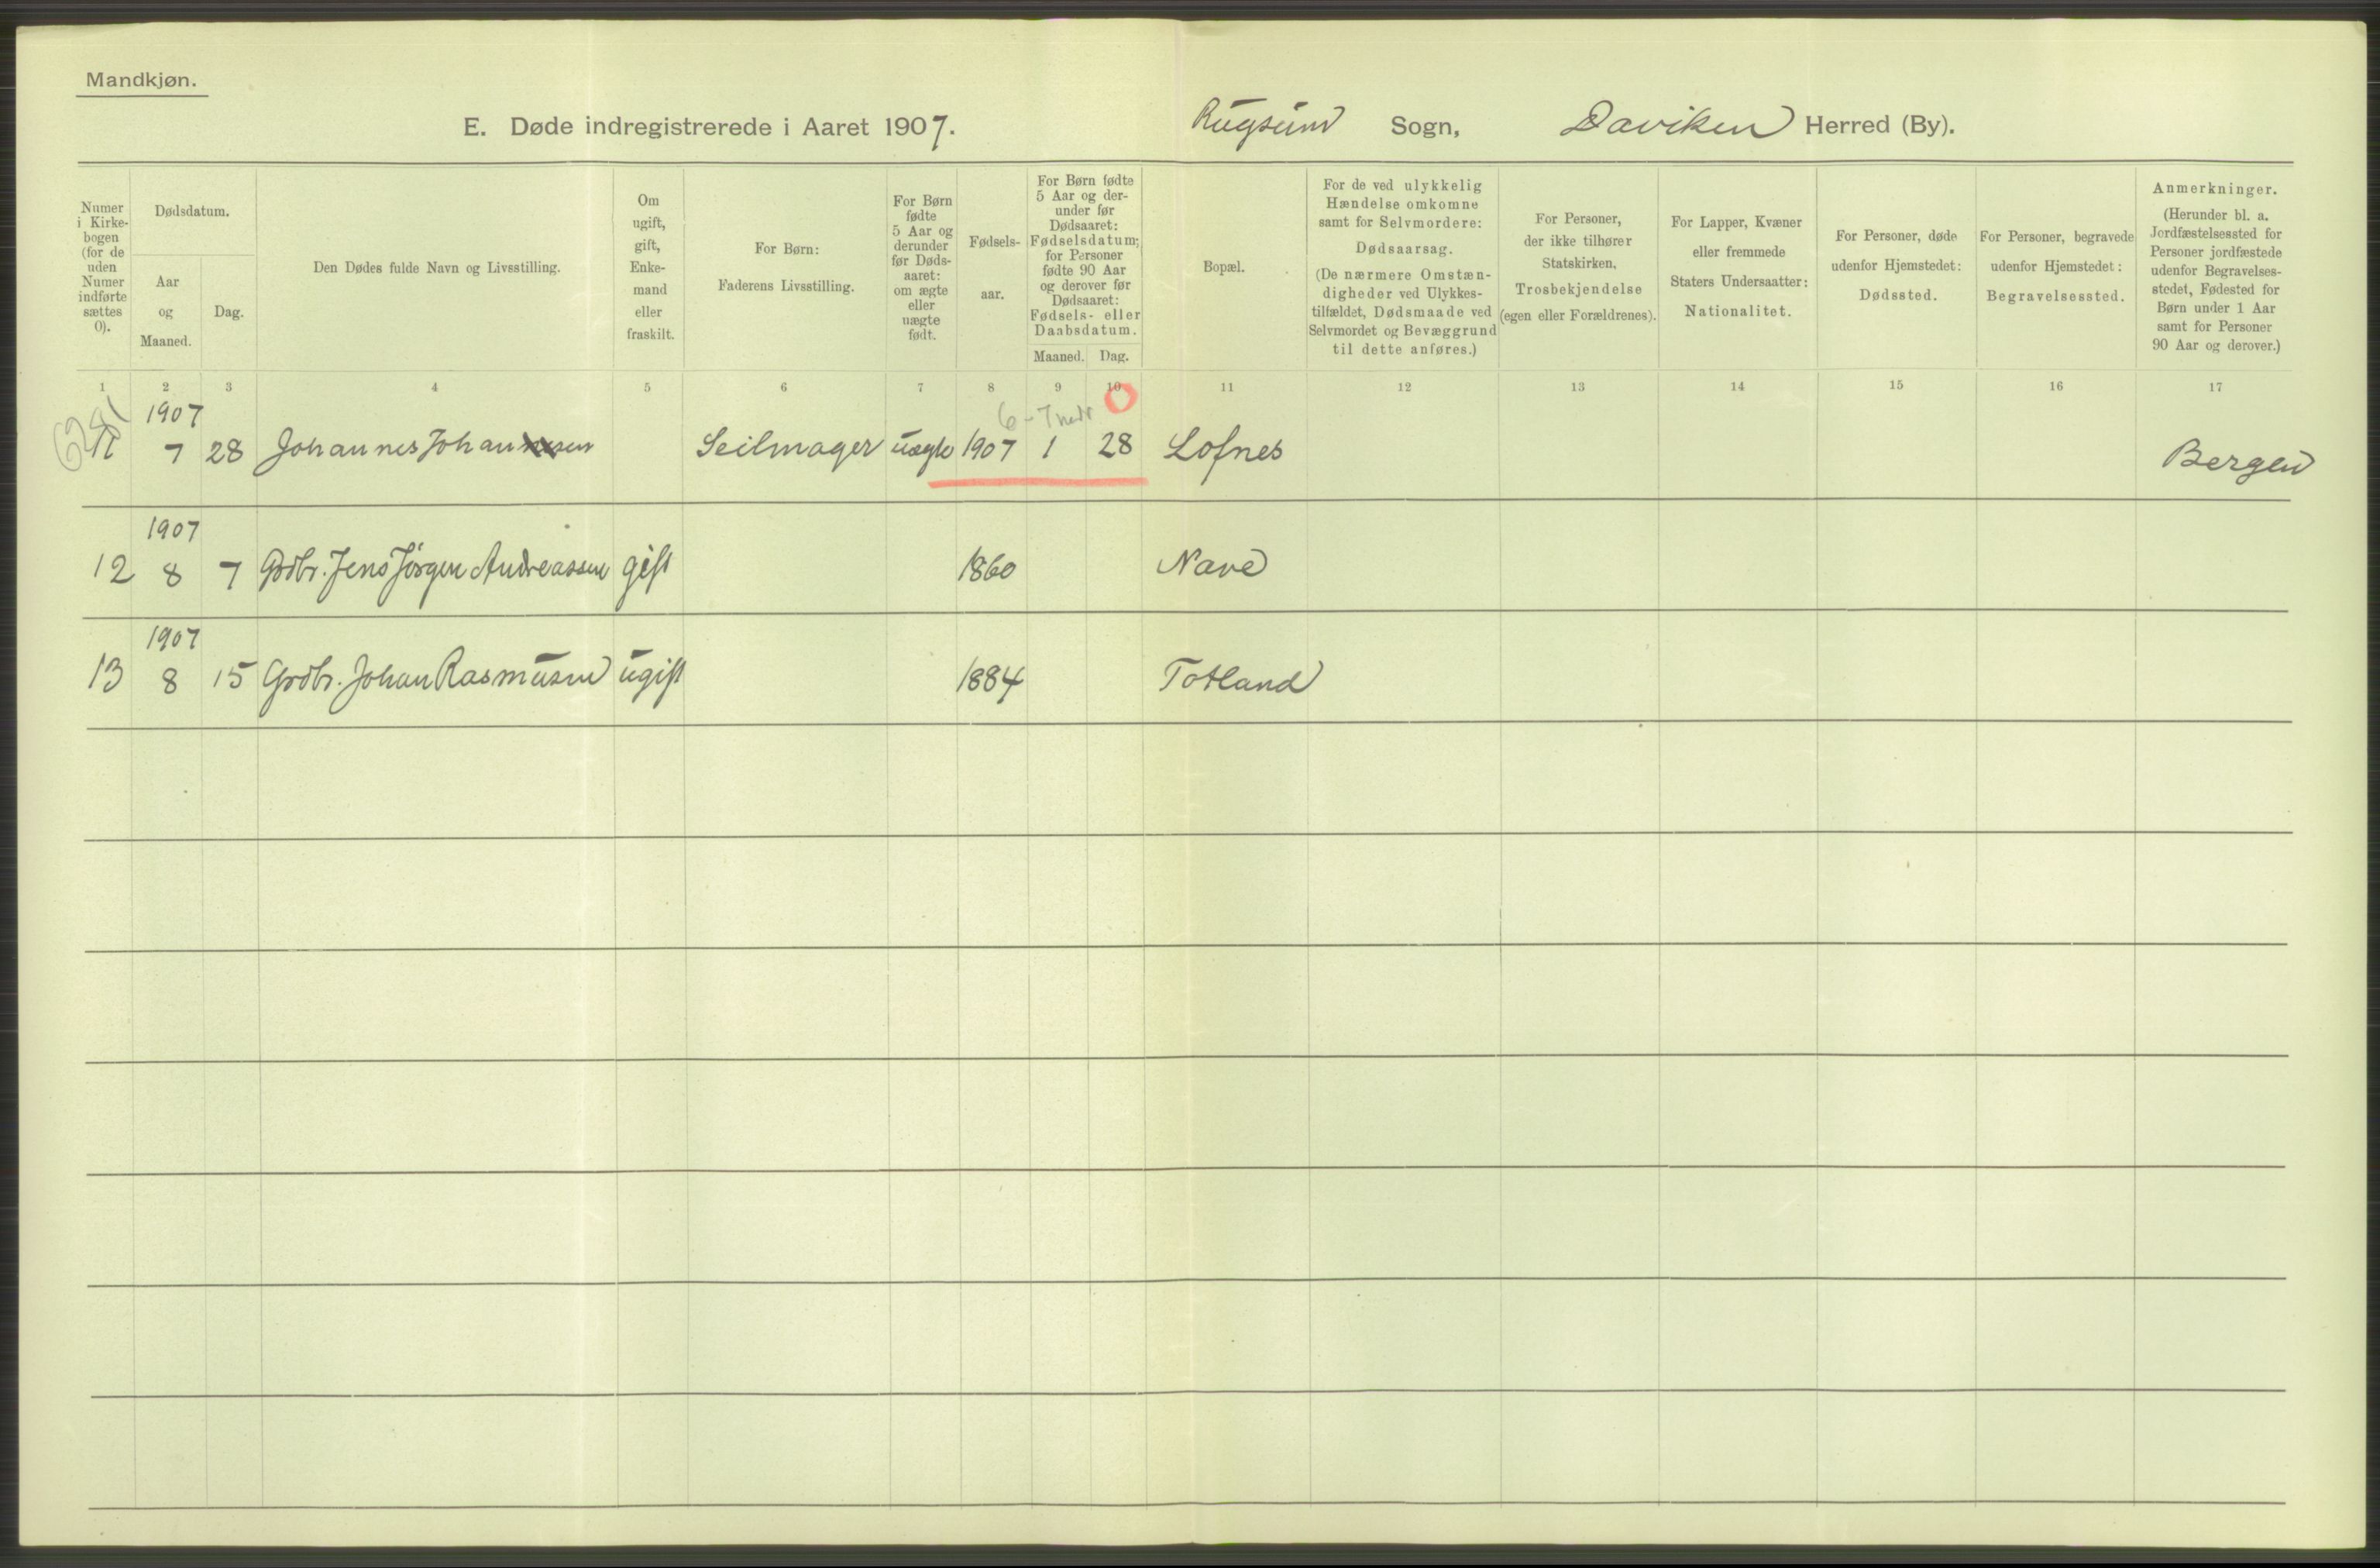 Mandkjøn.
E. Døde indregistrerede i Aaret 1907. Rugsund Sogn, Daviken Herred (By).
Numer i Kirkebogen (for de uden Numer indførte sættes 0).
Dødsdatum.
Aar og Maaned.
Dag.
Den Dødes fulde Navn og Livsstilling.
Om ugift, gift, Enkemand eller fraskilt.
For Børn: Faderens Livsstilling.
For Børn fødte 5 Aar og derunder før Dødsaaret: om ægte eller uægte født.
Fødselsaar.
For Børn fødte 5 Aar og derunder før Dødsaaret: Fødselsdatum; for Personer fødte 90 Aar og derover før Dødsaaret: Fødsels- eller Daabsdatum.
Maaned. Dag.
Bopæl.
For de ved ulykkelig Hændelse omkomne samt for Selvmordere: Dødsaarsag. (De nærmere Omstændigheder ved Ulykkestilfældet, Dødsmaade ved Selvmordet og Bevæggrund til dette anføres.)
For Personer, der ikke tilhører Statskirken, Trosbekjendelse (egen eller Forældrenes).
For Lapper, Kvæner eller fremmede Staters Undersaatter: Nationalitet.
For Personer, døde udenfor Hjemstedet: Dødssted.
For Personer, begravede udenfor Hjemstedet: Begravelsessted.
Anmerkninger. (Herunder bl. a. Jordfæstelsessted for Personer jordfæstede udenfor Begravelsesstedet, Fødested for Børn under 1 Aar samt for Personer 90 Aar og derover.)
1 2 3 4 5 6 7 8 9 10 11 12 13 14 15 16 17
1907 6-7 mdr 0
11 7 28 Johannes Johansen Seilmager uægte 1907 1 28 Lofnes Bergen
1907
12 8 7 Grdbr. Jens Jørgen Andreassen gift 1860 Nave
1907
13 8 15 Grdbr. Johan Rasmusen ugift 1884 Totland